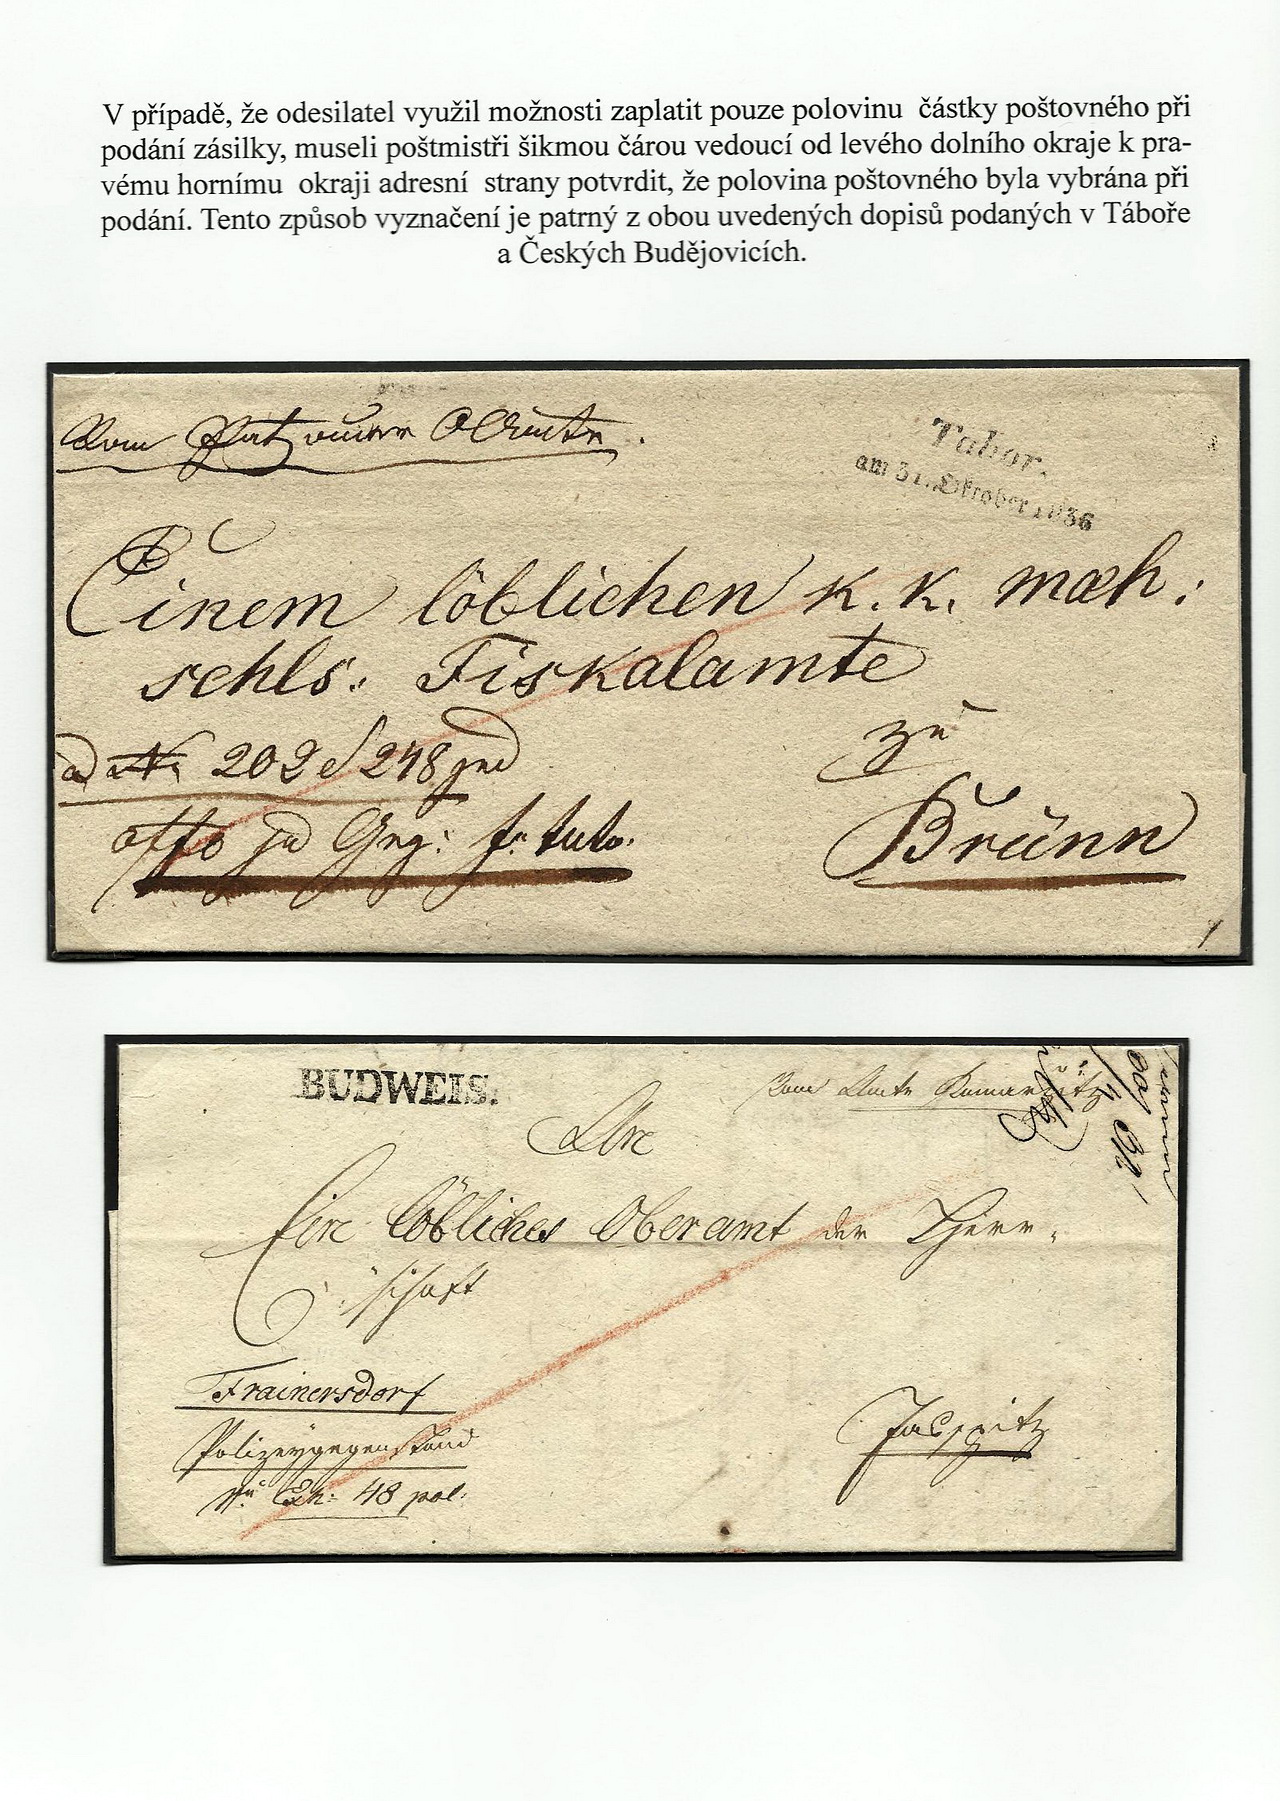 V případě, že odesilatel využil možnosti zaplatit pouze polovinu částky poštovného při
podání zásilky, museli poštmistři šikmou čárou vedoucí od levého dolního okraje k pra-
vému hornímu okraji adresní strany potvrdit, že polovina poštovného byla vybrána při
podání. Tento způsob vyznačení je patrný z obou uvedených dopisů podaných v Táboře
a Českých Budějovicích.
Vom
Tabor.
am 31. Oktober 1836
Einem löblichen K. K. mæh:
schls: Fiskalamte
202 248
zu
Brünn
BUDWEIS.
Vom Amte
An
Ein löbliches Oberamt der Herr-
schaft
Frainersdorf
Polizeygegenstand
Jaspitz
Exh: 48 pol: